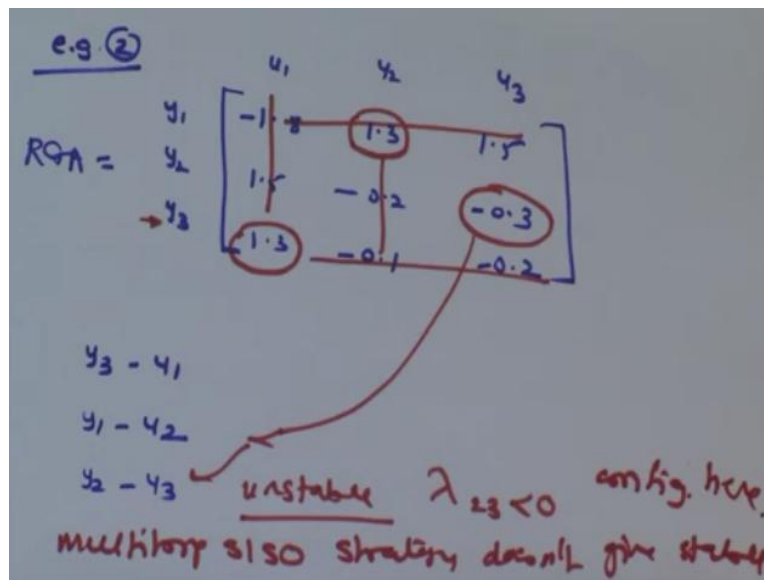 e.g. ②
u1 u2 u3
y1 -1.8 1.3 1.5
RGA = y2 1.5 -0.2 -0.3
→ y3 1.3 -0.1 -0.2
y3 - u1
y1 - u2
y2 - u3 unstable λ23<0 config. here,
multiloop SISO strategy doesn't give stable